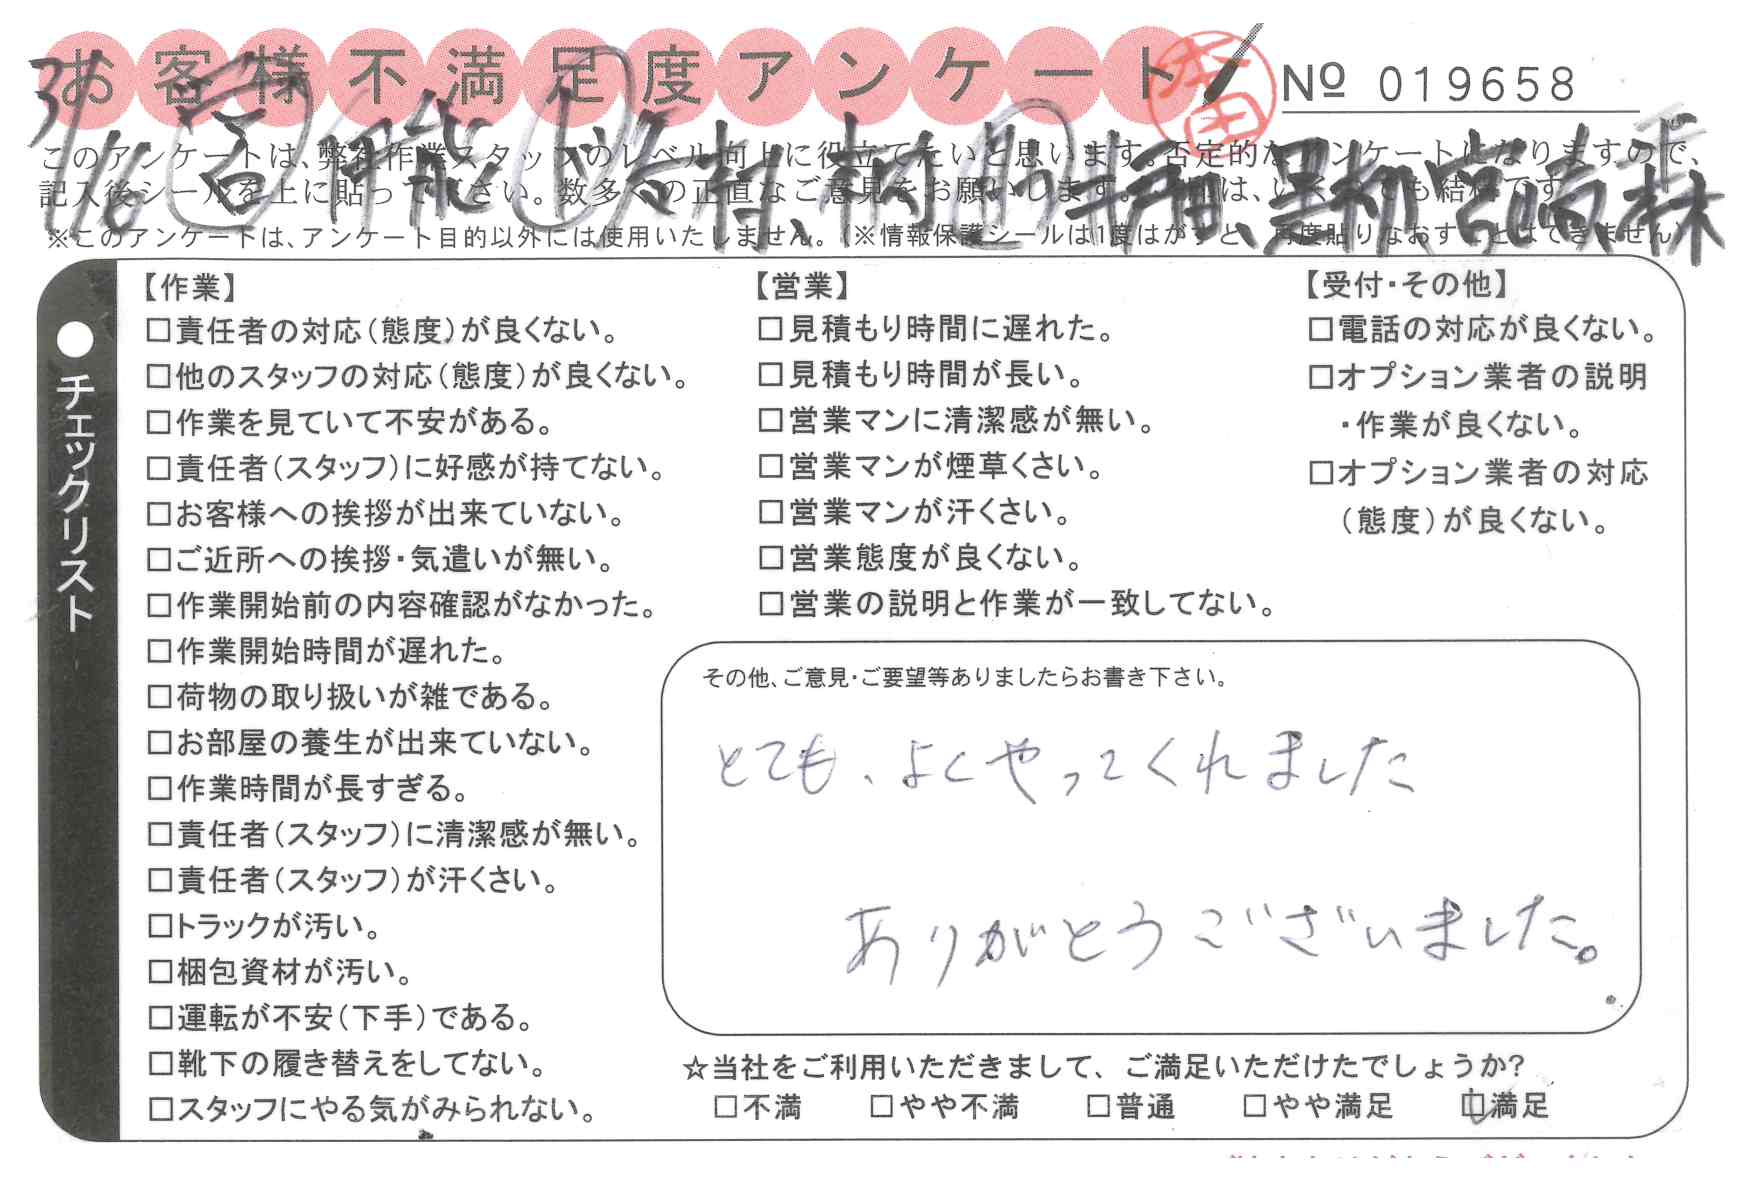 お客様不満足度アンケート
№ 019658
このアンケートは、弊社作業スタッフのレベル向上に役立てたいと思います。否定的なアンケートになりますので、
記入後シールを上に貼って下さい。数多くの正直なご意見をお願いします。
※このアンケートは、アンケート目的以外には使用いたしません。(※情報保護シールは1度はがすと、再度貼りなおすことはできません)
●チェックリスト
【作業】
□責任者の対応(態度)が良くない。
□他のスタッフの対応(態度)が良くない。
□作業を見ていて不安がある。
□責任者(スタッフ)に好感が持てない。
□お客様への挨拶が出来ていない。
□ご近所への挨拶・気遣いが無い。
□作業開始前の内容確認がなかった。
□作業開始時間が遅れた。
□荷物の取り扱いが雑である。
□お部屋の養生が出来ていない。
□作業時間が長すぎる。
□責任者(スタッフ)に清潔感が無い。
□責任者(スタッフ)が汗くさい。
□トラックが汚い。
□梱包資材が汚い。
□運転が不安(下手)である。
□靴下の履き替えをしてない。
□スタッフにやる気がみられない。
【営業】
□見積もり時間に遅れた。
□見積もり時間が長い。
□営業マンに清潔感が無い。
□営業マンが煙草くさい。
□営業マンが汗くさい。
□営業態度が良くない。
□営業の説明と作業が一致してない。
【受付・その他】
□電話の対応が良くない。
□オプション業者の説明
・作業が良くない。
□オプション業者の対応
(態度)が良くない。
その他、ご意見・ご要望等ありましたらお書き下さい。
とても、よくやってくれました
ありがとうございました。
☆当社をご利用いただきまして、ご満足いただけたでしょうか?
□不満 □やや不満 □普通 □やや満足 □満足